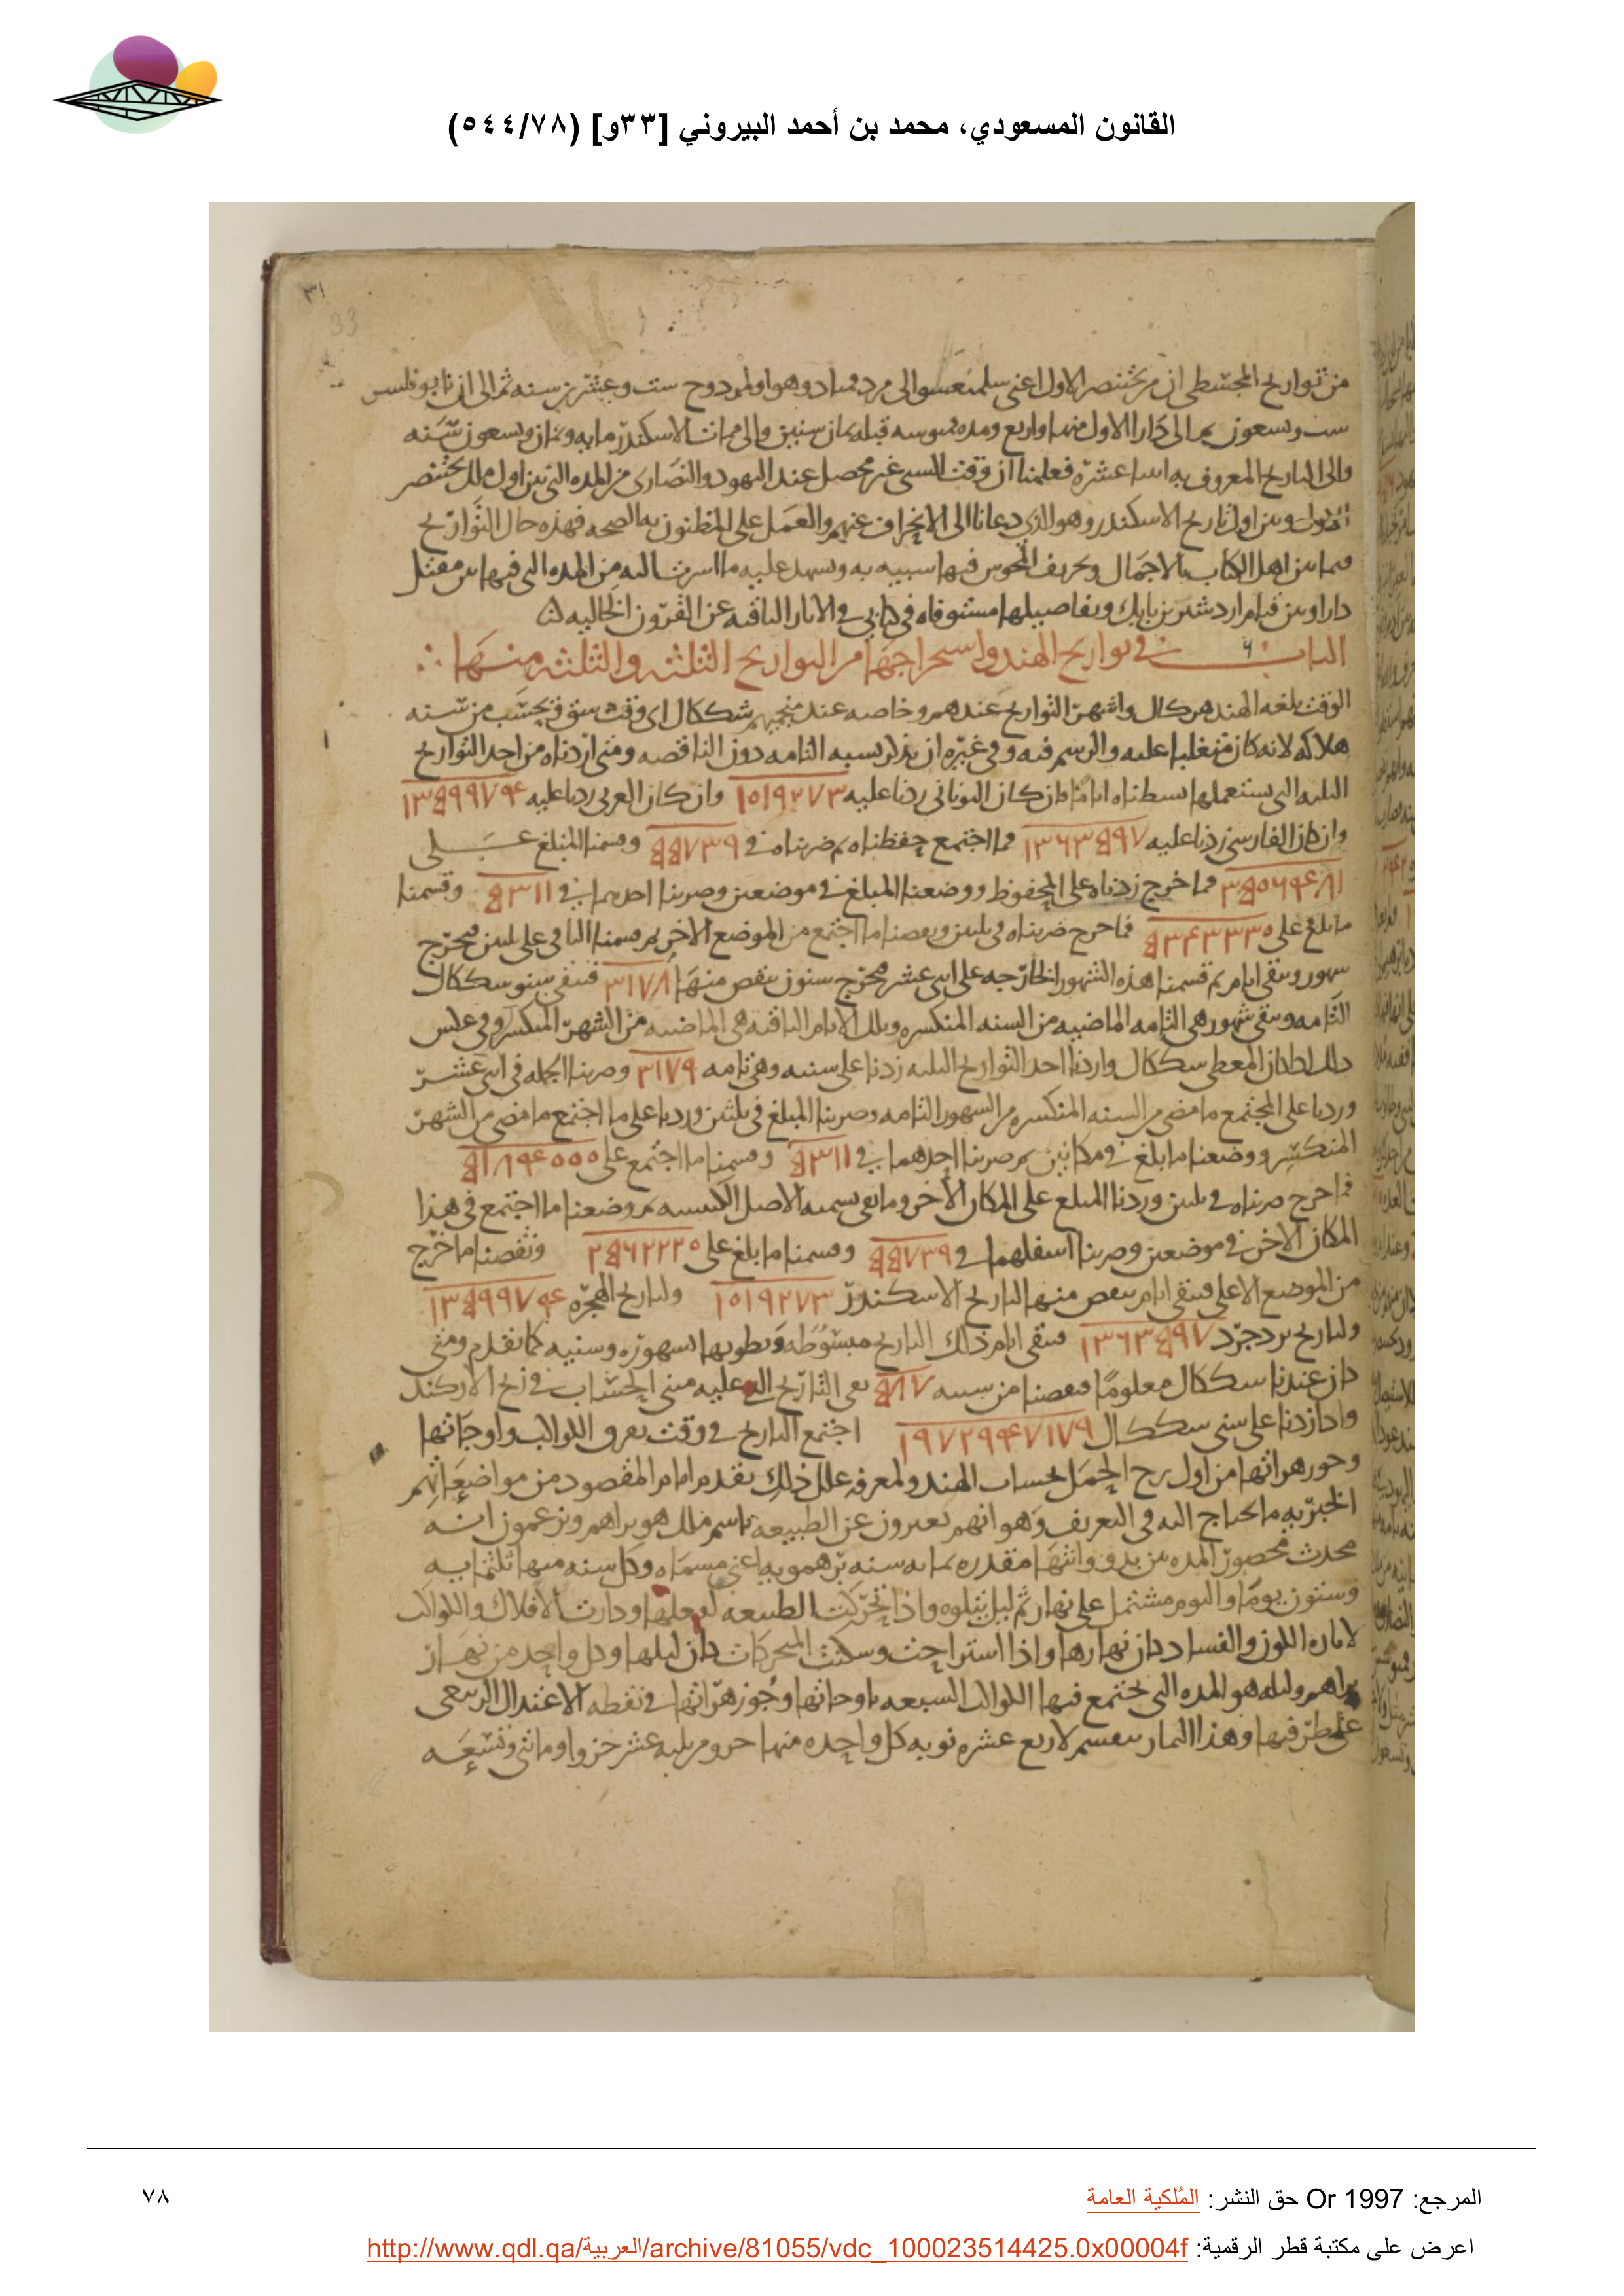 القانون المسعودي، محمد بن أحمد البيروني [٣٣و] (٥٤٤/٧٨)
٣١
33
من تواريخ المجسطي ان من بختنصر الاول اعني سلمنعسو الى مردمباد وهو اولمردوح ست وعشرين سنه ثم الى ان نابوفلسر
ست وسعون سم الى دارا الاول منهما واربع ومده قمبوسه قبله ثمان سنين والى ممات الاسكندر مايه وثمان وسعون سنه
والى التاريخ المعروف به اسا عشره فعلمنا ان وقت السبي غير محصل عند اليهود والنصارى من المده التي بين اول ملك بختنصر
وبين اول تاريخ الاسكندر وهو الذي دعانا الى الانحراف عنهم والعمل على المظنون به الصحه فهذه حال التواريخ
فيما بين اهل الكتاب بالاجمال وتحريف المجوس فيها سبيه به وسهد عليه ما اسرنا اليه من المده التي فيها بين مقتل
دارا وبين قيام اردشير بن بابك وتفاصيلها مستوفاه في كتابي في الاثار الباقيه عن القرون الخاليه
الباب ٦ في تواريخ الهند واستخراجها من التواريخ الثلثه والثلثه منها
الوقت بلغه الهند هو كال واشهر التواريخ عندهم وخاصه عند منجميهم شككال اى وقت سق ويحسب من سنه
هلاكه لانه كان متغلبا عليه والرسم فيه وفي غيره ان يذكر نسبه التامه دون الناقصه ومتى اردناه من احد التواريخ
الثلثه التي نستعملها بسطناه اياما فان كان اليوناني زدنا عليه ١٥١٩٢٧٣ وان كان العربي زدنا عليه ١٣٥٩٩٧٩٤
وان كان الفارسي زدنا عليه ١٣٦٣٥٩٧ فما اجتمع حفظناه ثم ضربناه في ٥٥٧٣٩ وقسمنا المبلغ على
٣٥٥٦٩٤٨١ فما خرج زدناه على المحفوظ ووضعنا المبلغ في موضعين وضربنا احدهما في ٥٣١١ وقسمنا
ما بلغ على ٥٣٤٣٣٣٥ فما خرج ضربناه في ثلثين ونقصنا ما اجتمع من الموضع الاخر ثم قسمنا الباقي على ثلثين فيخرج
شهور وتبقى ايام ثم قسمنا هذه الشهور الخارجه على اثنى عشر فيخرج سنون ننقص منها ٣١٧٨ فتبقى سنو شككال
التامه وتبقى شهور هي التامه الماضيه من السنه المنكسره وتلك الايام الباقيه هي الماضيه من الشهر المنكسر وفي عكس
ذلك اذا كان المعطى شككال واردنا احد التواريخ الثلثه زدنا على سنيه وهي تامه ٣١٧٩ وضربنا الجمله في اثنى عشر
وزدنا على المجتمع ما مضى من السنه المنكسره من الشهور التامه وضربنا المبلغ في ثلثين وزدنا على ما اجتمع ما مضى من الشهر
المنكسر ووضعنا ما بلغ في مكانين ثم ضربنا احدهما في ٥٣١١ وقسمنا ما اجتمع على ٥١٨٩٤٥٥٥
فما خرج ضربناه في ثلثين وزدنا المبلغ على المكان الاخر وما بقى نسميه الاصل الكبيسه ثم وضعنا ما اجتمع في هذا
المكان الاخر في موضعين وضربنا اسفلهما في ٥٥٧٣٩ وقسمنا ما بلغ على ٢٥٦٢٢٢٥ ونقصنا ما خرج
من الموضع الاعلى فتبقى ايام ننقص منها لتاريخ الاسكندر ١٥١٩٢٧٣ ولتاريخ الهجره ١٣٥٩٩٧٩٤
ولتاريخ يزدجرد ١٣٦٣٥٩٧ فتبقى ايام ذلك التاريخ مبسوطه ونطويها لشهوره وسنيه كما تقدم ومتى
كان عندنا شككال معلوما نقصنا من سنيه ٥٨٧ بقى التاريخ الذى عليه مبنى الحساب في زيج الاركند
واذا زدنا على سنى شككال ١٩٧٢٩٤٧١٧٩ اجتمع التاريخ في وقت تفرق الكواكب واوجاتها
وجوزهراتها من اول برج الحمل بحساب الهند ولمعرفه علل ذلك نقدم امام المقصود من مواضعاتهم
الخبريه ما يحتاج اليه في التعريف وهو انهم يعبرون عن الطبيعه باسم ملك هو براهم ويزعمون انه
محدث محصور المده بين بدو وانتها مقدره بمايه سنه برهمويه اعني مسماه وكل سنه منها ثلثمايه
وستون يوما واليوم مشتمل على نهار ثم ليل يتلوه واذا تحركت الطبيعه لفعلها ودارت الافلاك والكواكب
لاثاره الكون والفساد كان نهارها واذا استراحت وسكنت المتحركات كان ليلها وكل واحد من نهار
براهم وليله هو المده التي تجتمع فيها الكواكب السبعه باوجاتها وجوزهراتها في نقطه الاعتدال الربيعي
على طرفيها وهذا النهار ينقسم لاربع عشره نوبه كل واحده منها جزو من ثلثه عشر جزوا ومائتى وتسعه
المرجع: Or 1997 حق النشر: المُلكية العامة
٧٨
اعرض على مكتبة قطر الرقمية: http://www.qdl.qa/العربية/archive/81055/vdc_100023514425.0x00004f